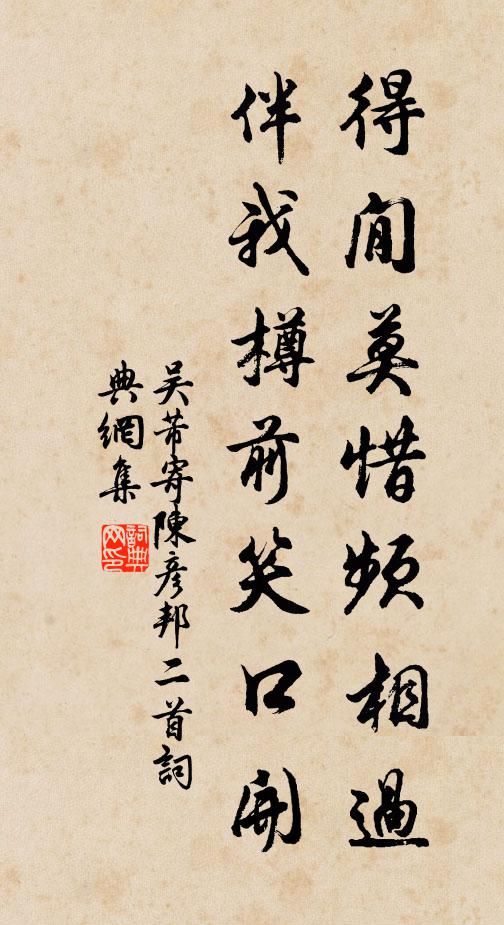 得閒莫惜頻相過
伴我樽前笑口開
吴芾寄陳彦邦二首詞
典網集
詞典
网印